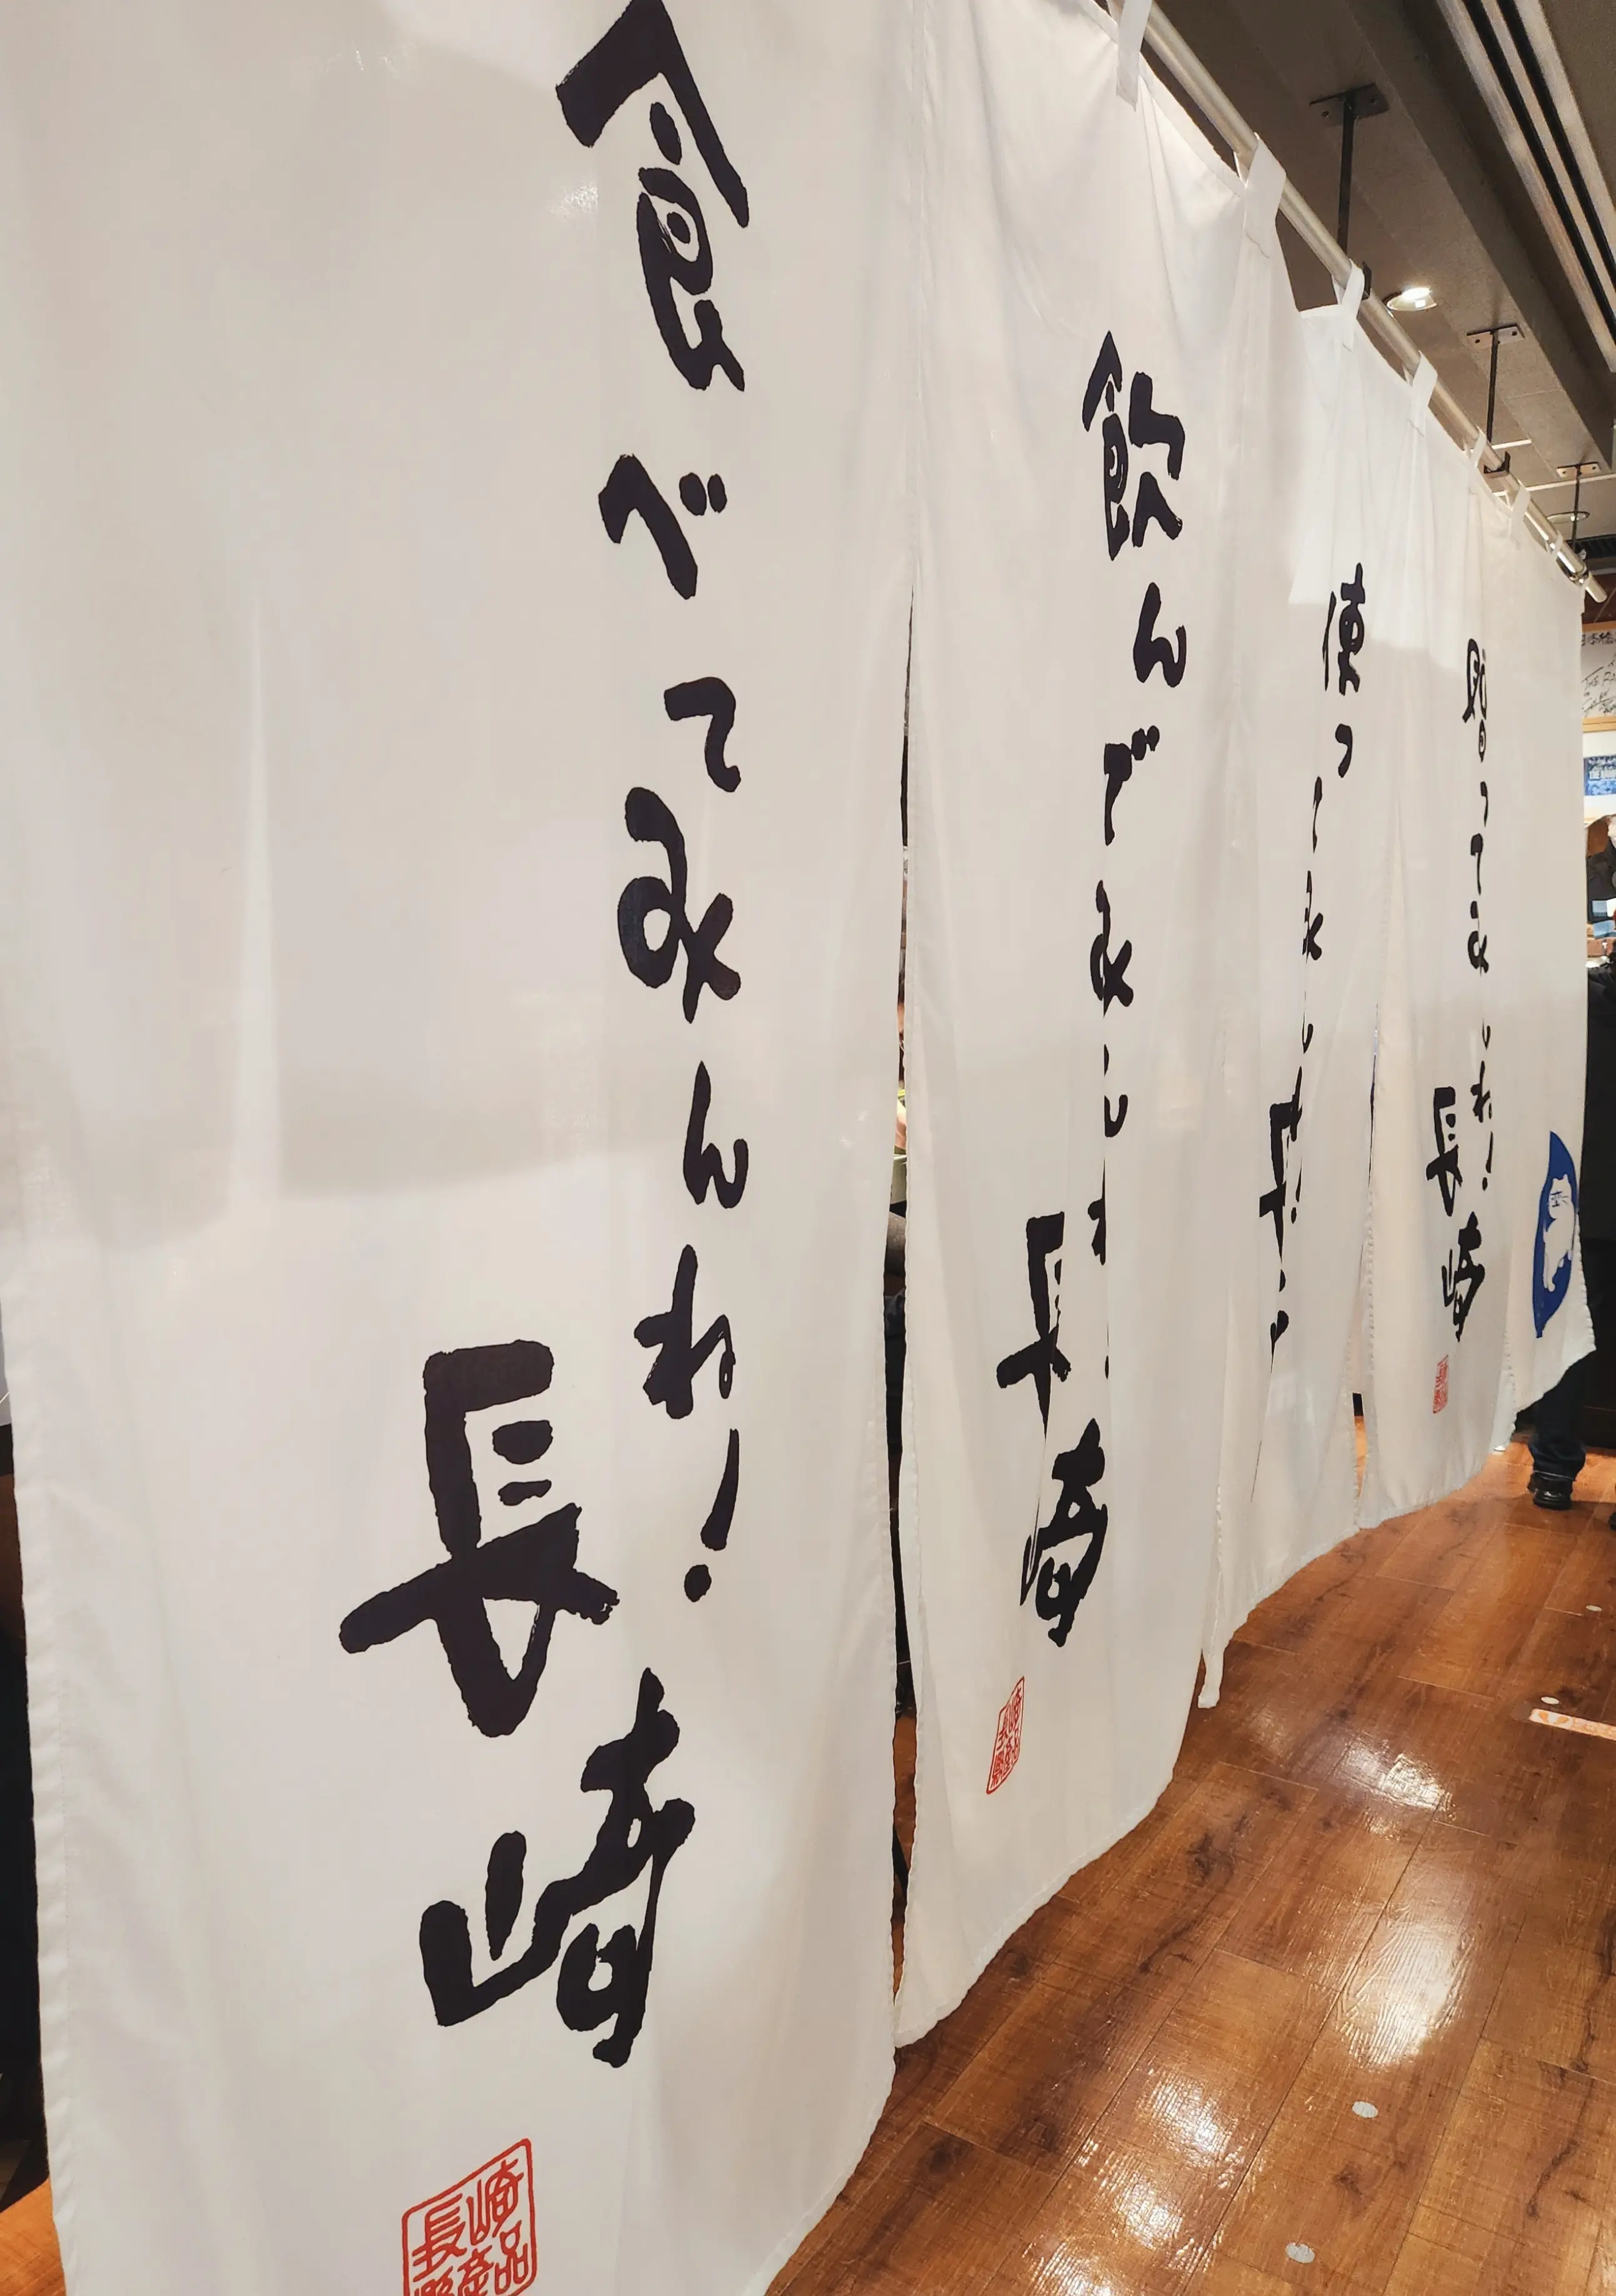 食べてみんね!
長崎
飲んでみんね
長崎
使ってみんね!
長
贈ってみんね!
長崎